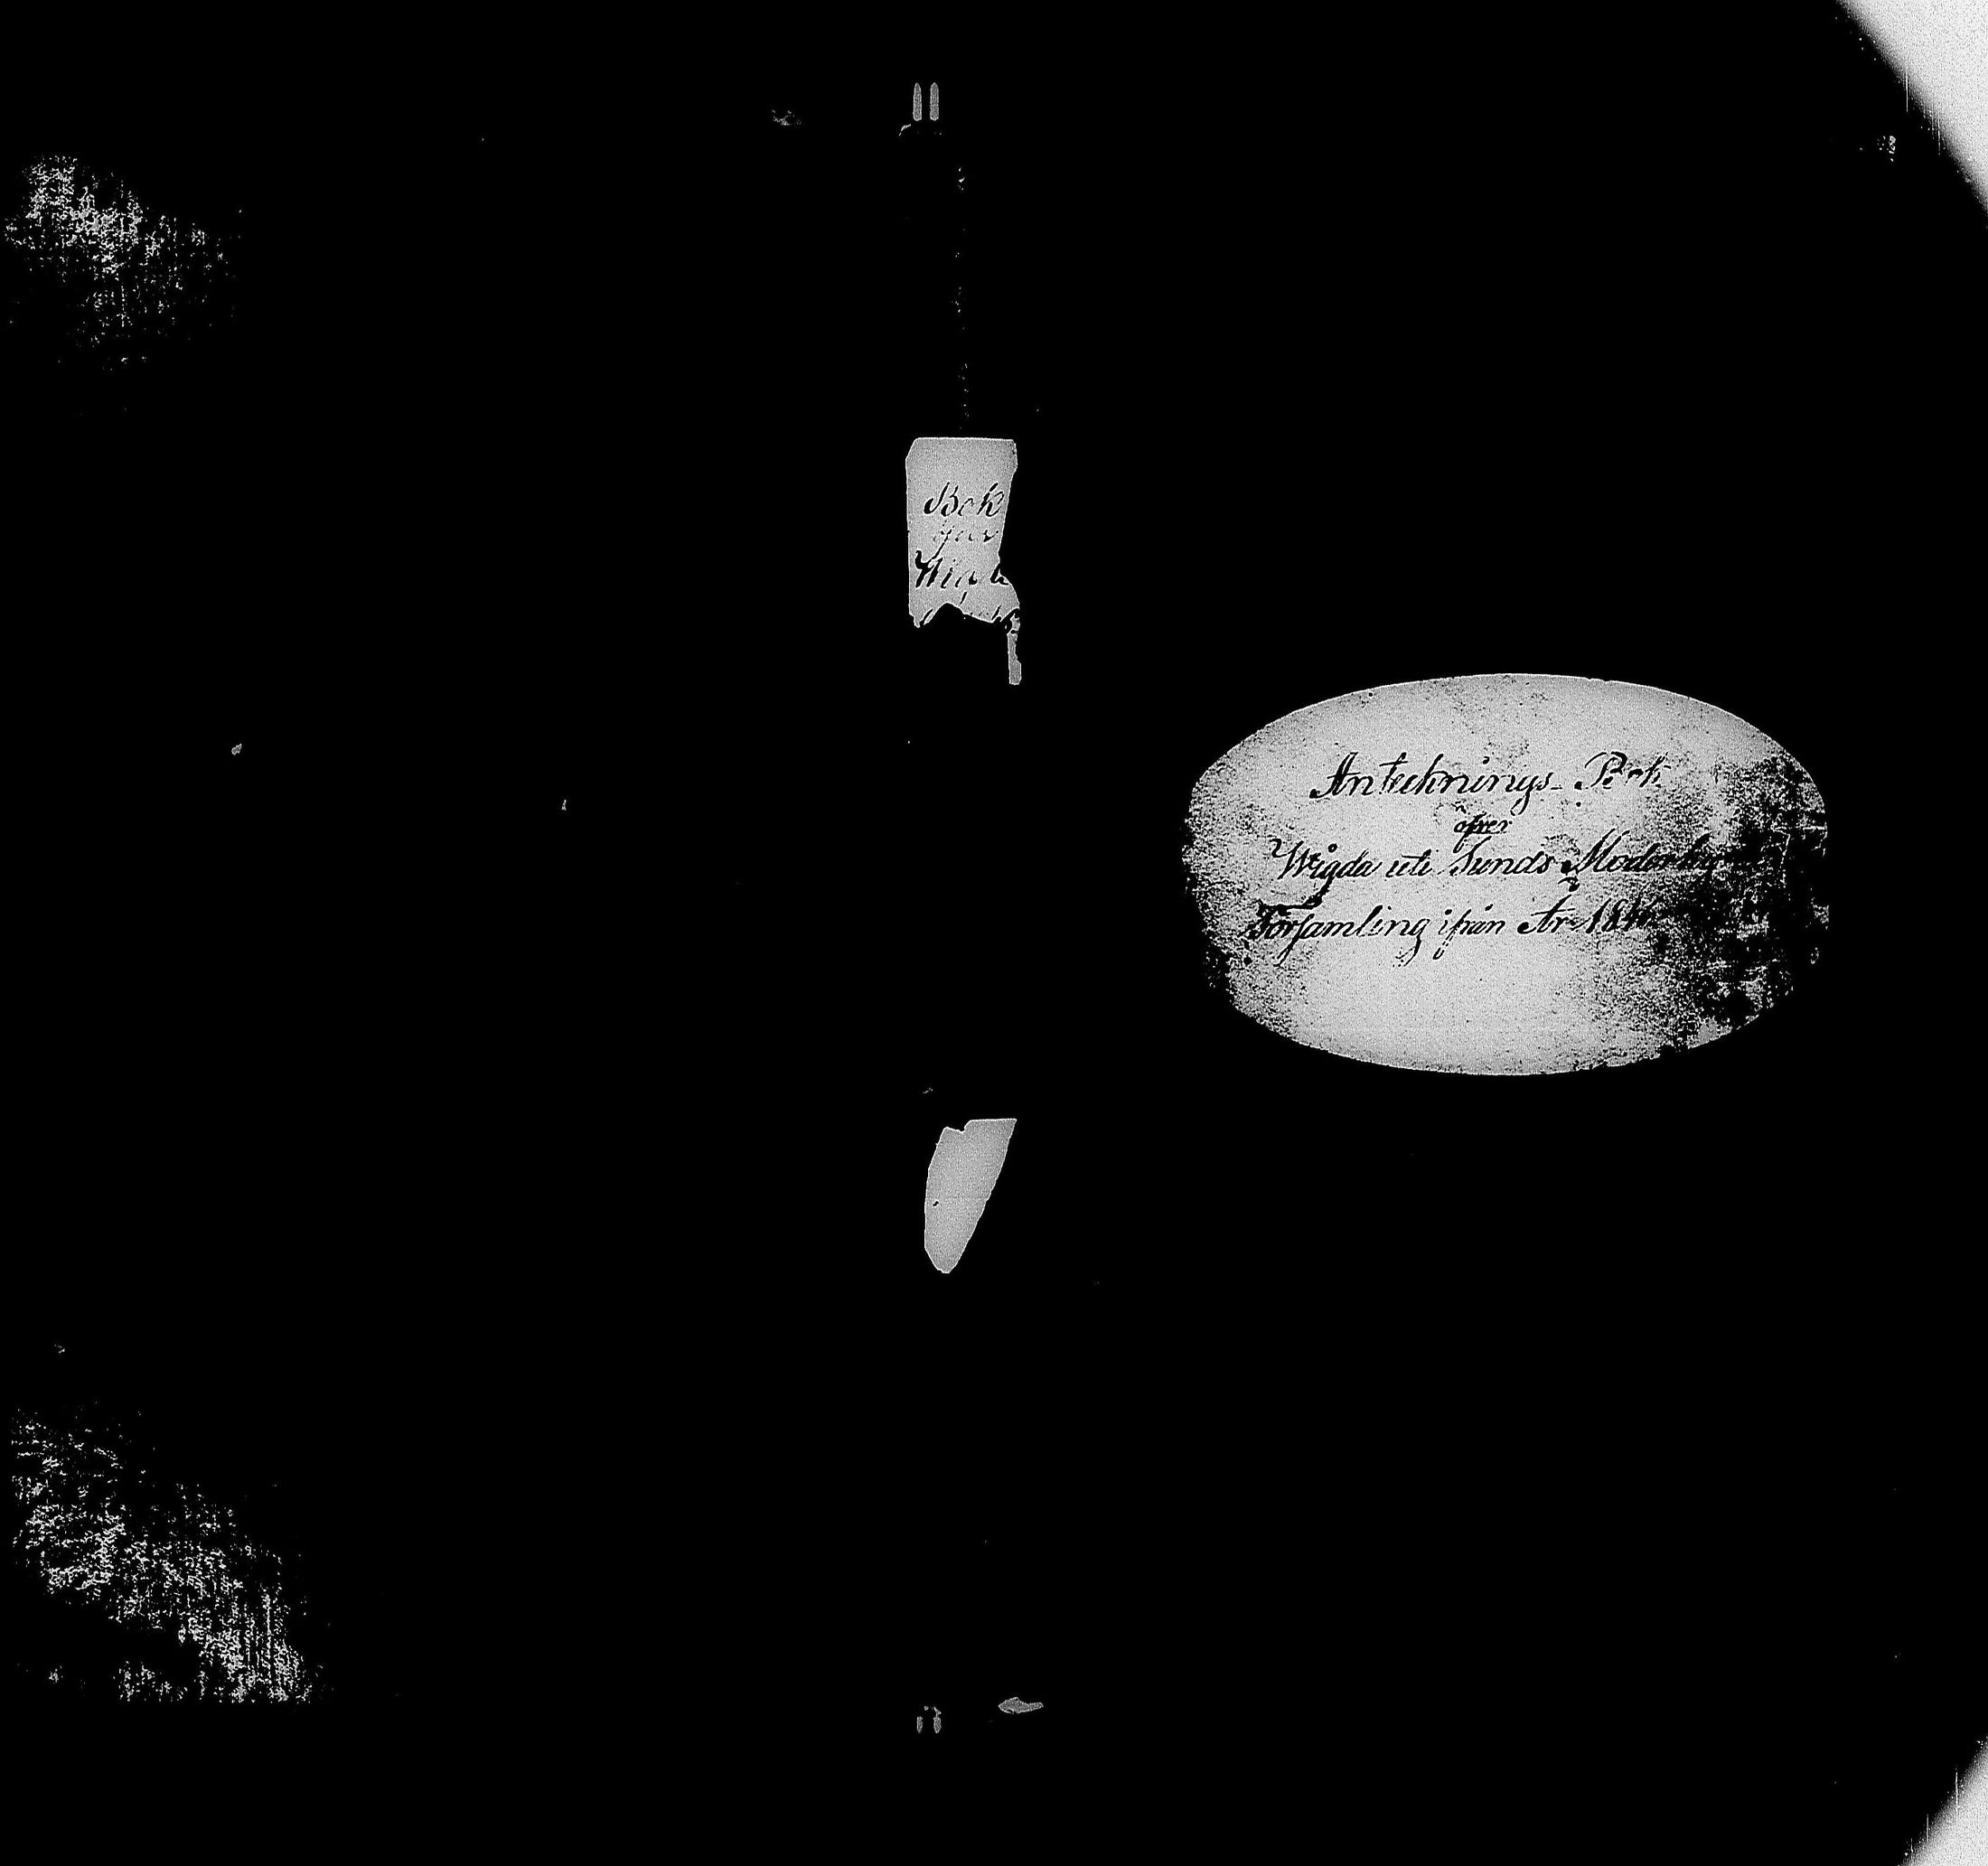 Bok
öfver
Wigda
Antecknings-Bok
öfver
Wigda uti Sunds Moderky
Församling ifrån År 18